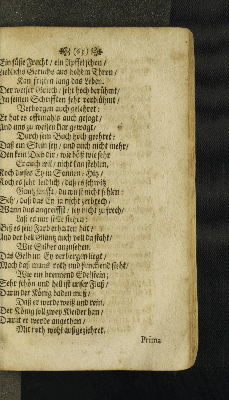 (63)
Ein süsse Frucht / ein Apffelschen /
Lieblichs Geruchs aus hoht in Thren /
Kan fristen lang das Leben.
Der weiser Gleich / sehr hoch berühmt /
In seinen Schrifften sehr verblühmt /
Verborgen auch gelehret:
Er hat es offtmahls auch gesagt /
Und uns zu weisen klar gewagt /
Durch sein Buch noch geehret:
Daß ein Stein sey / und auch nicht mehr /
Den kein Dieb dir / wie böß wie sehr
Er auch wil / nicht kan stehlen.
Koch dieses Ey in Sonnen-Hitz /
Koch es sehr leidlich / daß es schwitz
Gantz sanfft / du wirst nicht fehlen.
Sch / daß das Ey ja nicht zerbrech /
Wann dus angreiffst / sey nicht zu frech /
Laß es nur stille stehen:
Biß es sein Farb erhalten hat /
Und der hell Glantz auch voll da staht /
Wie Silber anzusehen.
Das Gelb im Ey verborgen liegt /
Mach daß mans roth und scheinend sieht /
Wie ein brennend Edelstein;
Sehr schön und hell ist unser Fluß /
Darin der König baden muß /
Daß er werde weiß und rein.
Der König soll zwey Kleider han /
Damit er werde angethan /
Mit roth wohl außgezieret.
Prima